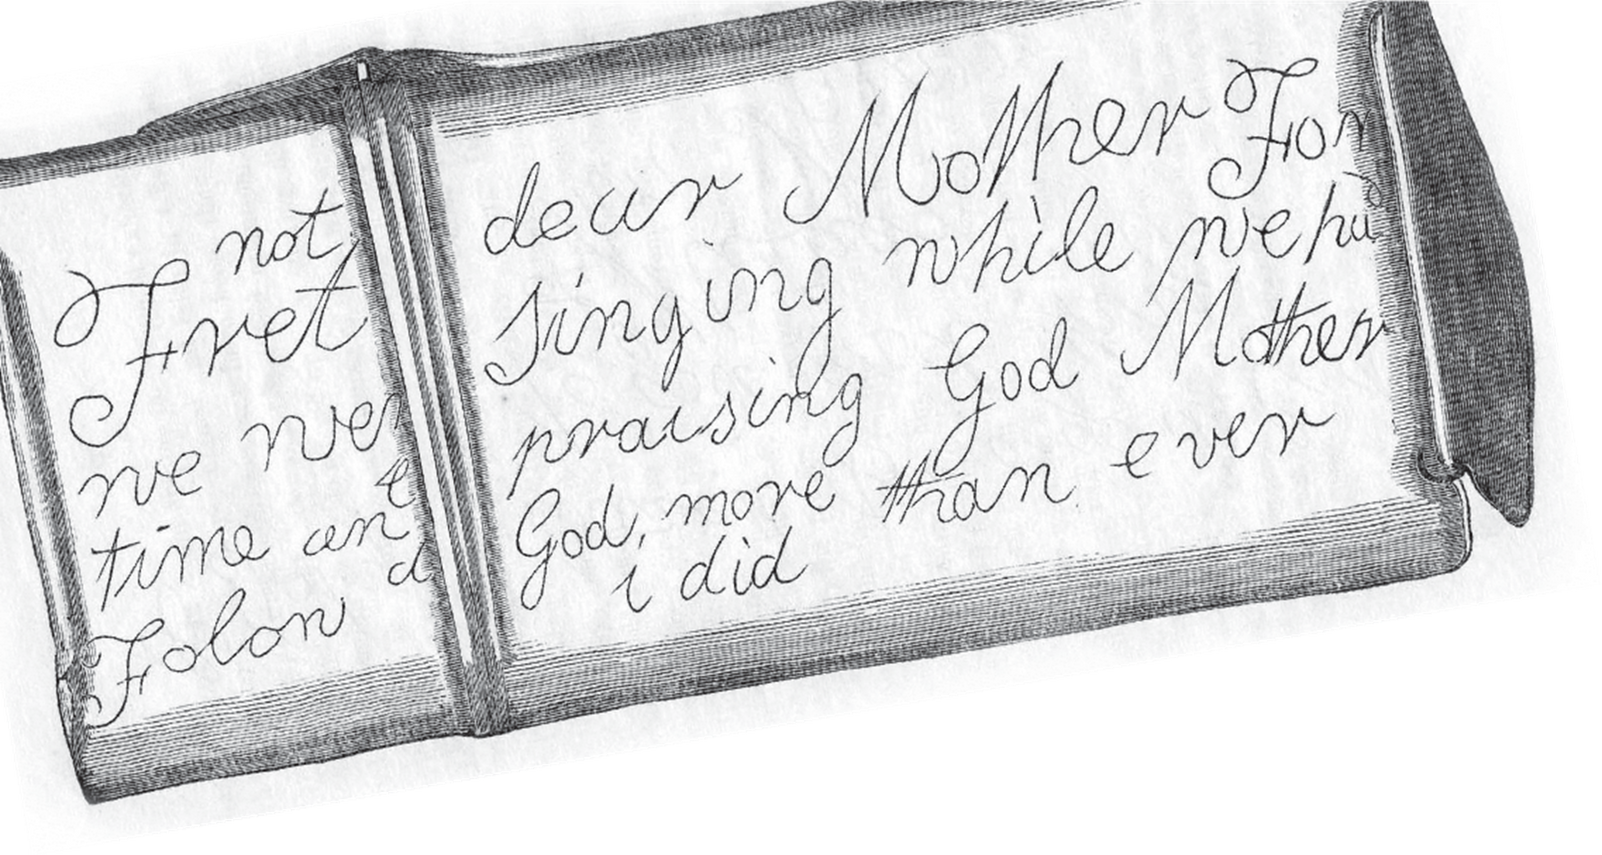 not
Fret
we were
time and
Folon
dear Mother For
Singing while we
praising God Mother
God, more than ever
i did